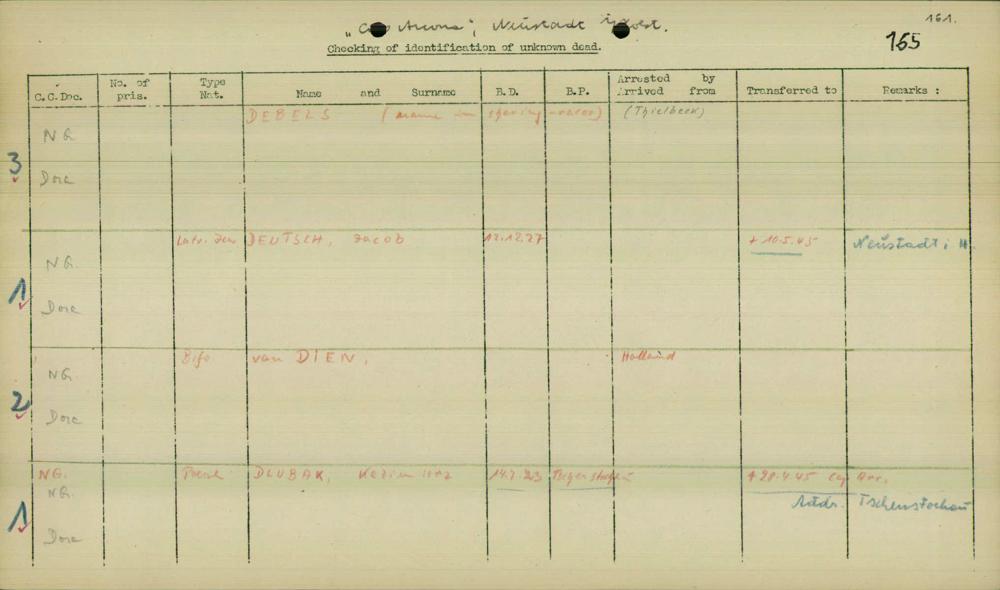 161.
"Cap Arcona"; Neustadt i. Holst.
165
Checking of identification of unknown dead.
C.C.Doc. No. of pris. Type Nat. Name and Surname B.D. B.P. Arrested by Arrived from Transferred to Remarks :
DEBELS (name in shaving- (Thielbeck)
NG.
3
Dora
Latv. Jew DEUTSCH, Jacob 12.12.27 + 10.5.45 Neustadt i H.
NG.
1
Dora
Bifo van DIEN, Holland
NG.
2
Dora
NG. DLUBAK, 14.7.23 + 28.4.45 Cap Arc.
NG. Addr. Tschenstochau
1
Dora